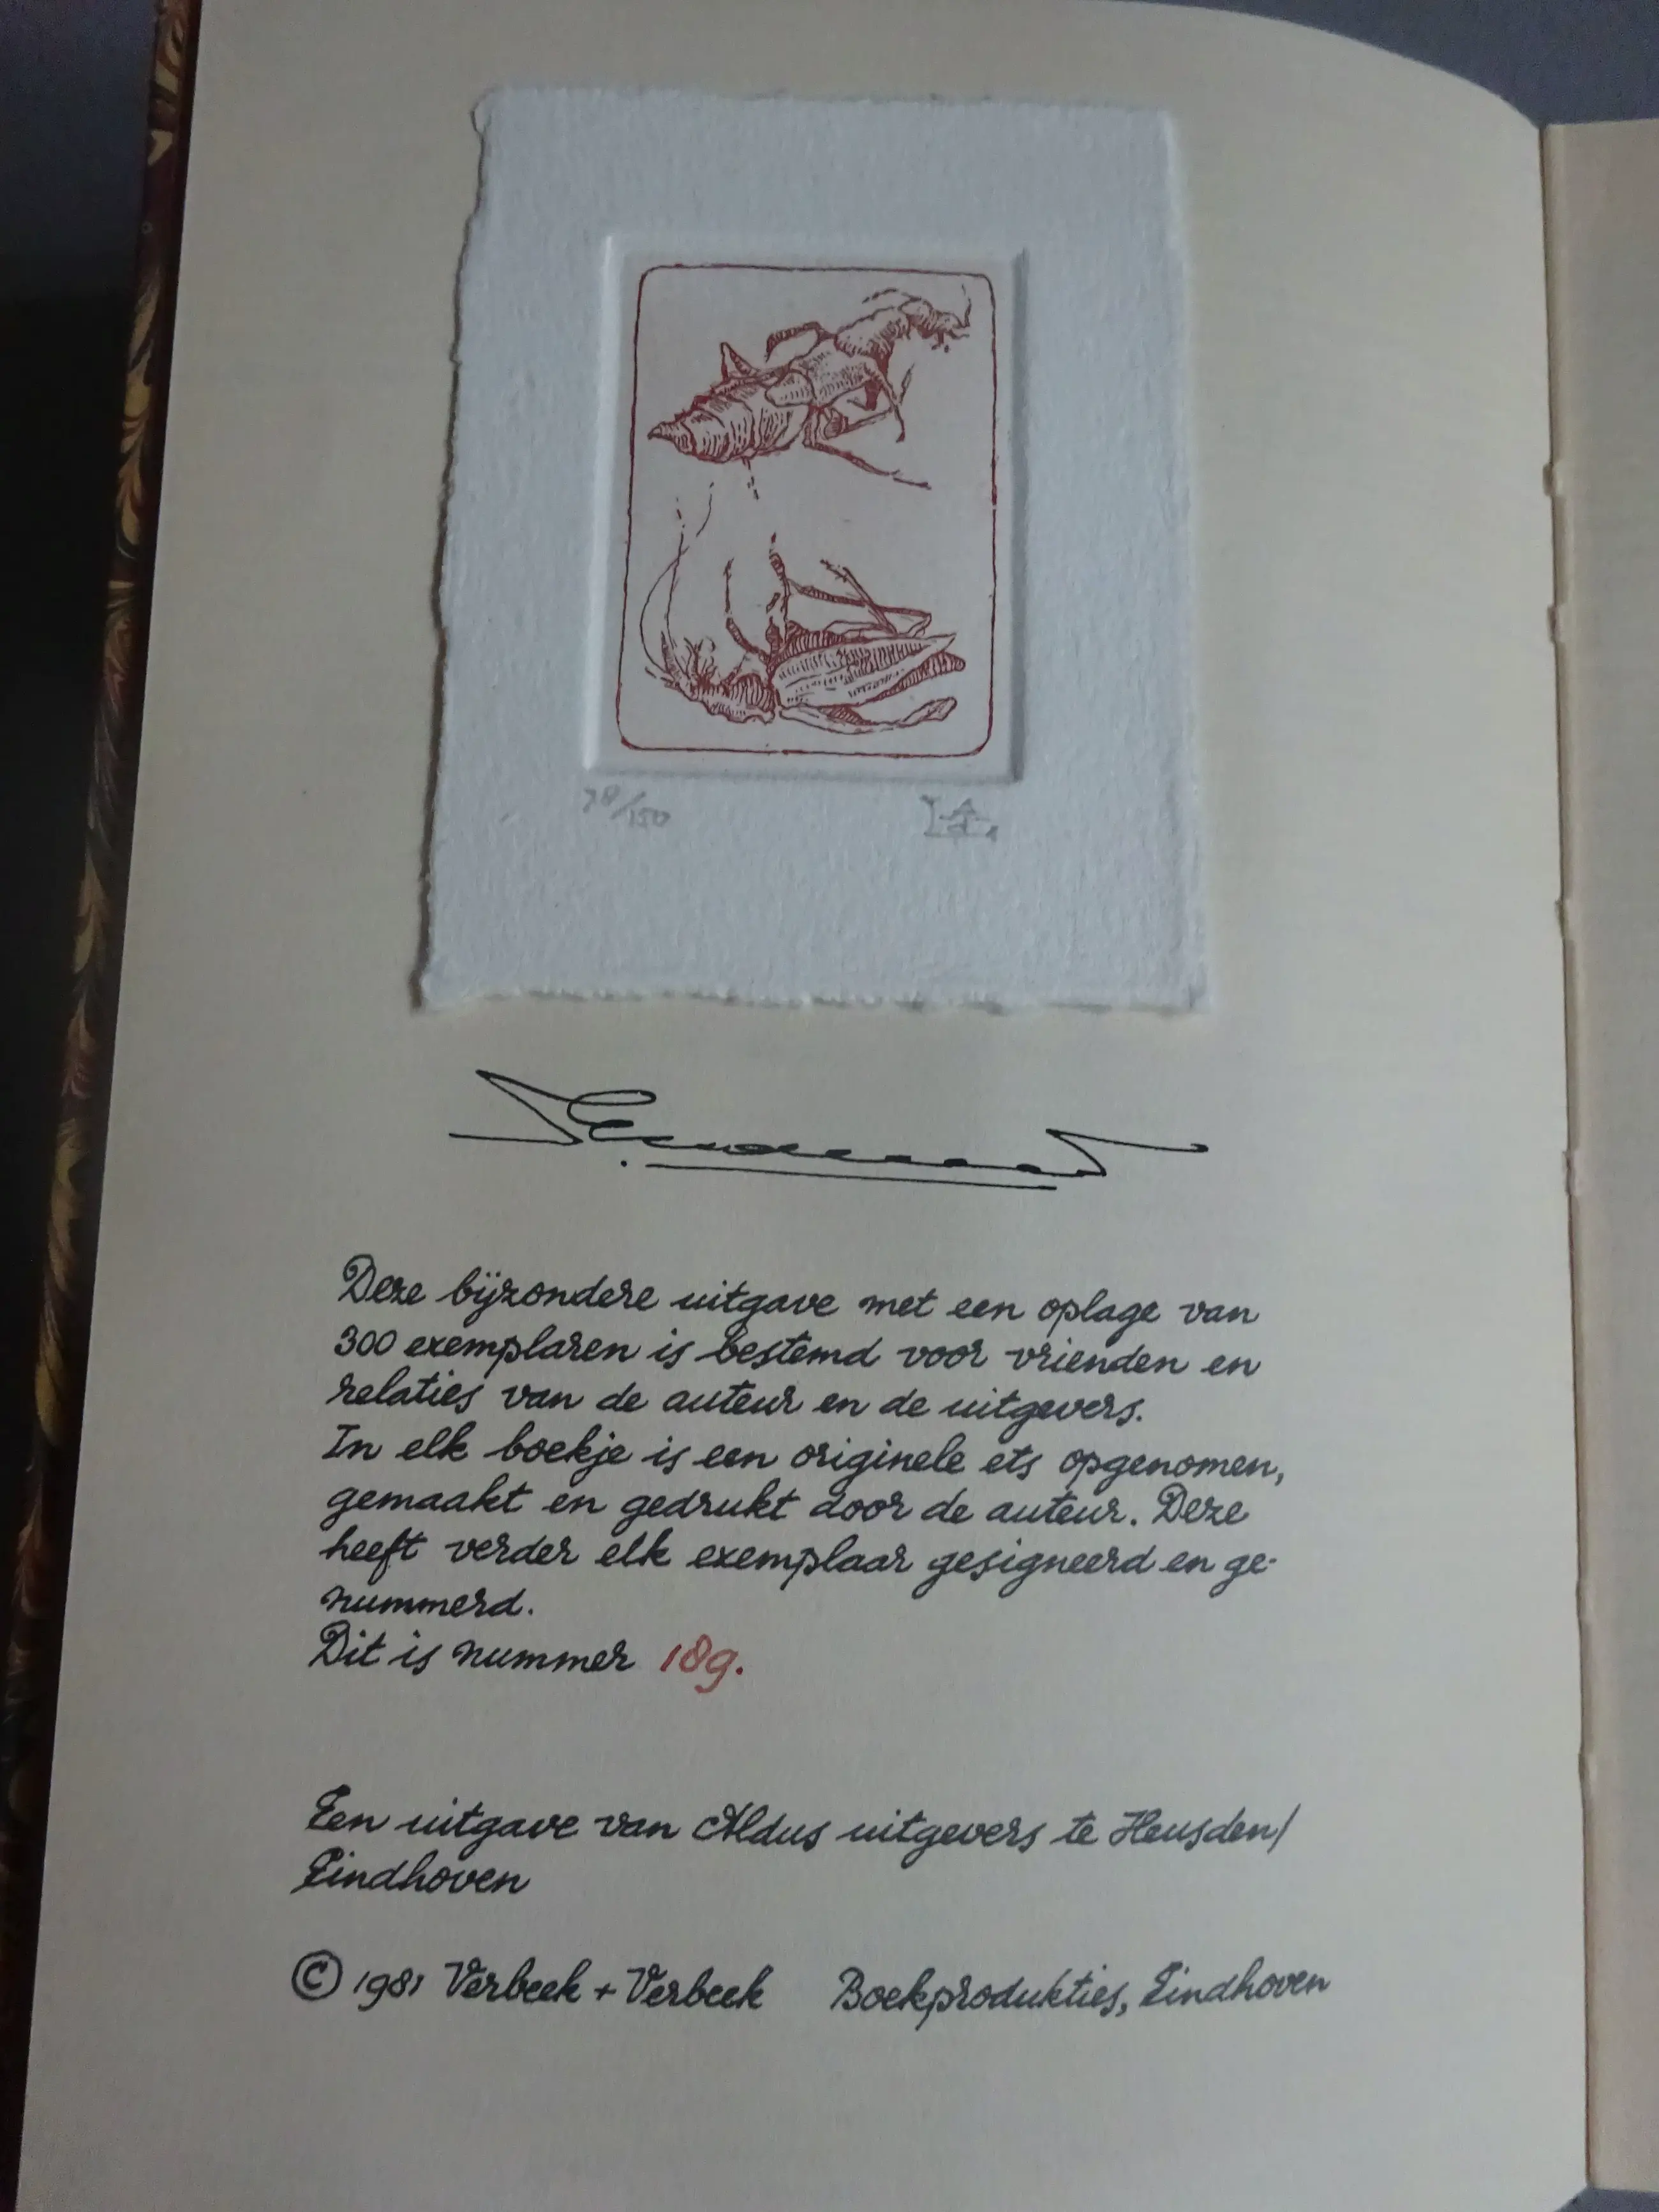 78/150
Deze bijzondere uitgave met een oplage van
300 exemplaren is bestemd voor vrienden en
relaties van de auteur en de uitgevers.
In elk boekje is een originele ets opgenomen,
gemaakt en gedrukt door de auteur. Deze
heeft verder elk exemplaar gesigneerd en ge-
nummerd.
Dit is nummer 189.
Een uitgave van Aldus uitgevers te Heusden/
Eindhoven
© 1981 Verbeek + Verbeek Boekprodukties, Eindhoven